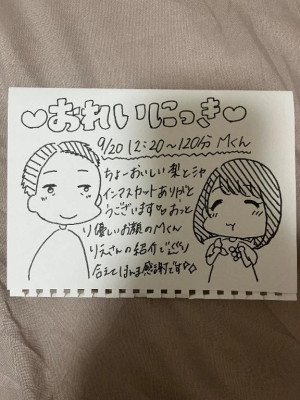 ♡おれいにっき♡
9/20 12:20〜120分 Mくん
ちょーおいしい梨とシャ
インマスカットありがと
うございます♡おっと
り優しいお顔のMくん
りえさんの紹介で巡り
合えてほんま感謝です✧